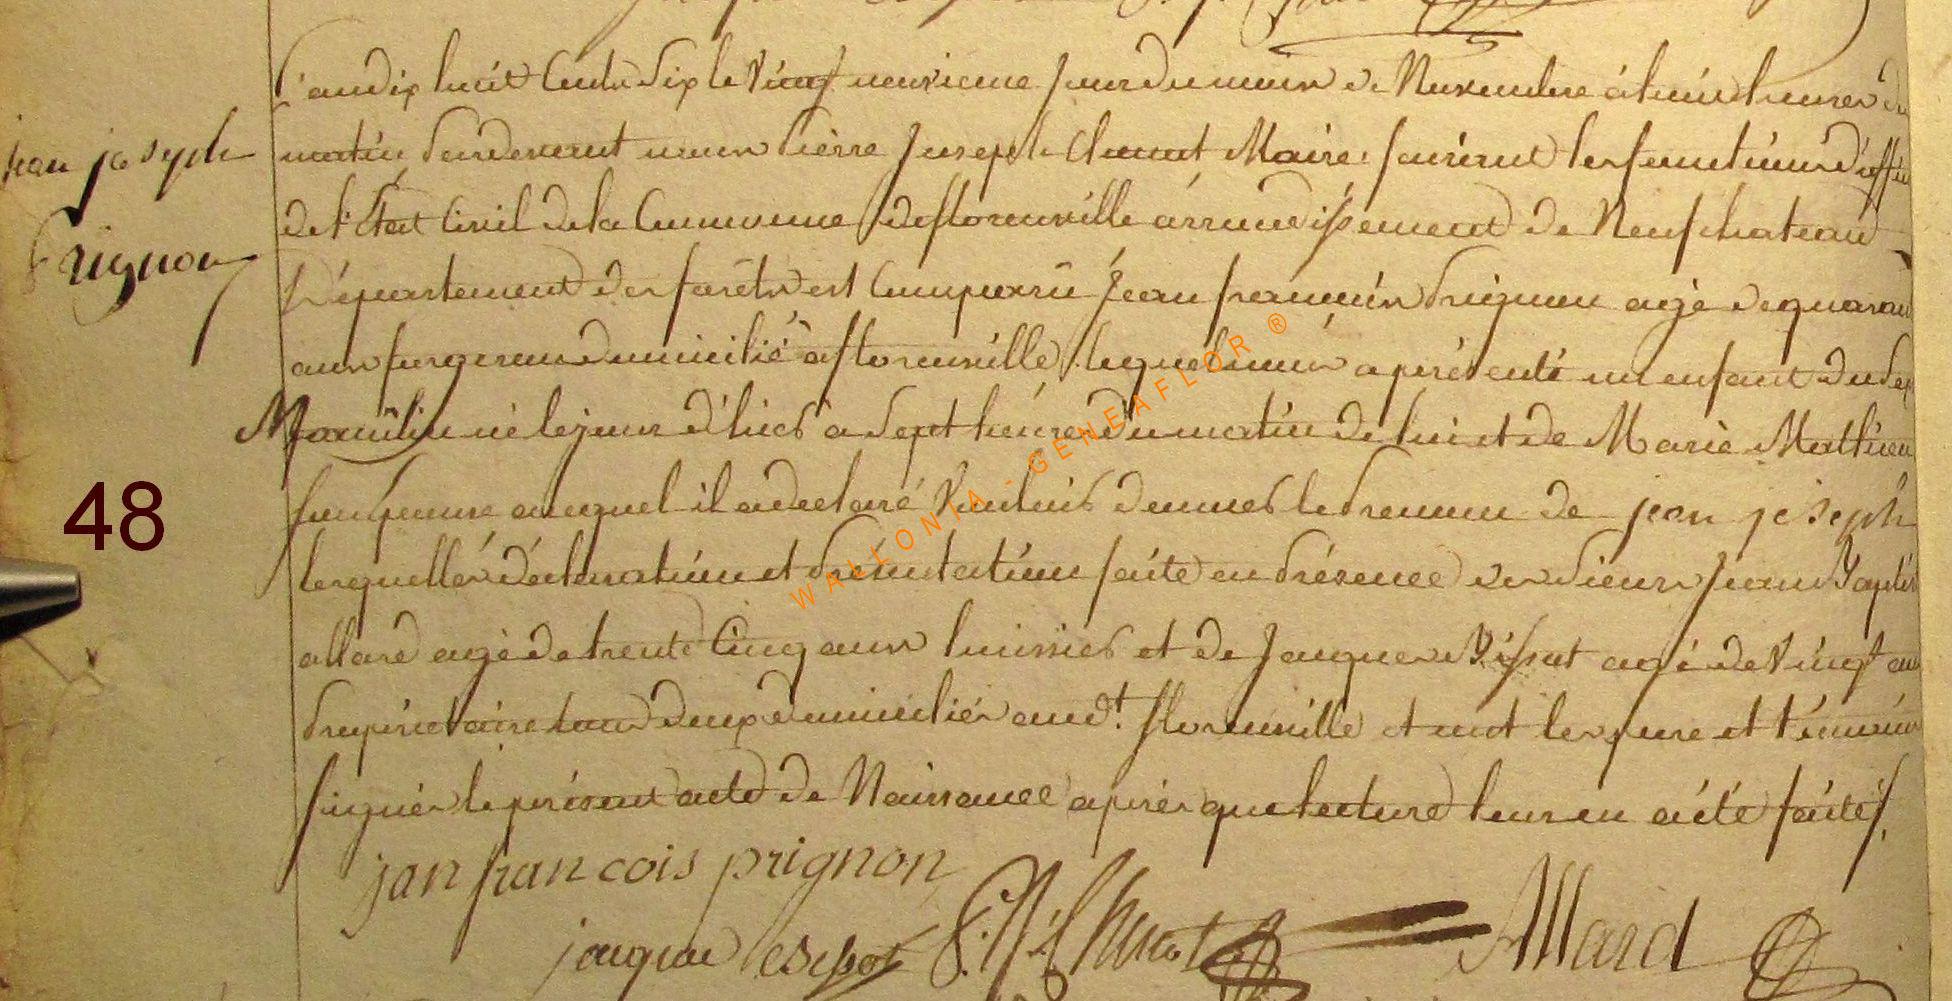 jean joseph
Prignon
48
L'an dix huit Cents dix le vingt neuvieme jour du mois de Novembre à huit heures du
matin pardevant nous Pierre Joseph Maire faisant les fonctions d'offic
de l'Etat Civil de la Commune de florenville arrondissement de Neufchateau
Département des forêts est Comparû Jean francois Prignon agé de quarante
ans forgeron domicilié à florenville lequel nous a présenté un enfant du sex
Masculin né le jour d'hier à sept heures du matin de lui et de Marie Mathieu
son épouse auquel il a declaré vouloir donner le prenom de jean joseph
lesquelles déclaration et présentation faite en présence des sieurs Jean Baptis
allard agé de trente Cinq ans huissier et de Jacques agé de vingt ans
propriétaire tous deux domiciliés aud.t florenville et ont les pere et témoins
signés le présent acte de Naissance après que lecture leur en a été faite.
jan francois prignon
jacque
Allard
WALLONIA - GENEAFLOR ®